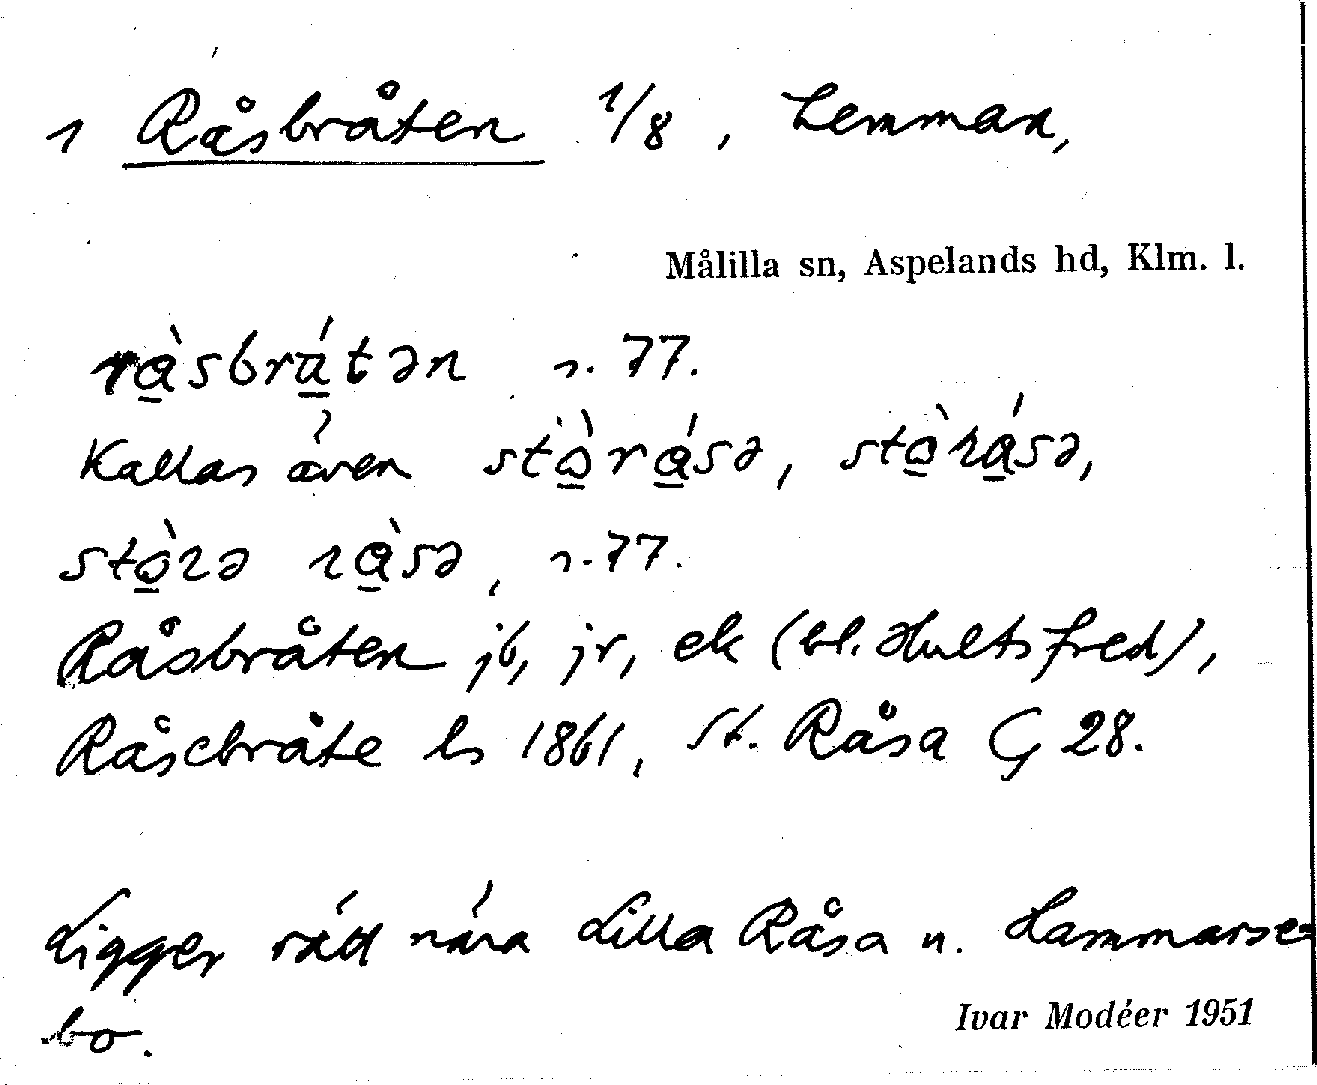 1 Råsbråten 1/8, hemman,
Målilla sn, Aspelands hd, Klm. l.
rà̱sbrá̱tən n. 77.
Kallas även stò̱rá̱sə, stò̱rá̱sə,
stò̱rə rà̱sə, n. 77.
Råsbråten jb, jr, ek (bl. Hultsfred),
Råsebråte ls 1861, St. Råsa G 28.
Ligger rätt nära Lilla Råsa u. Hammarse-
bo.
Ivar Modéer 1951